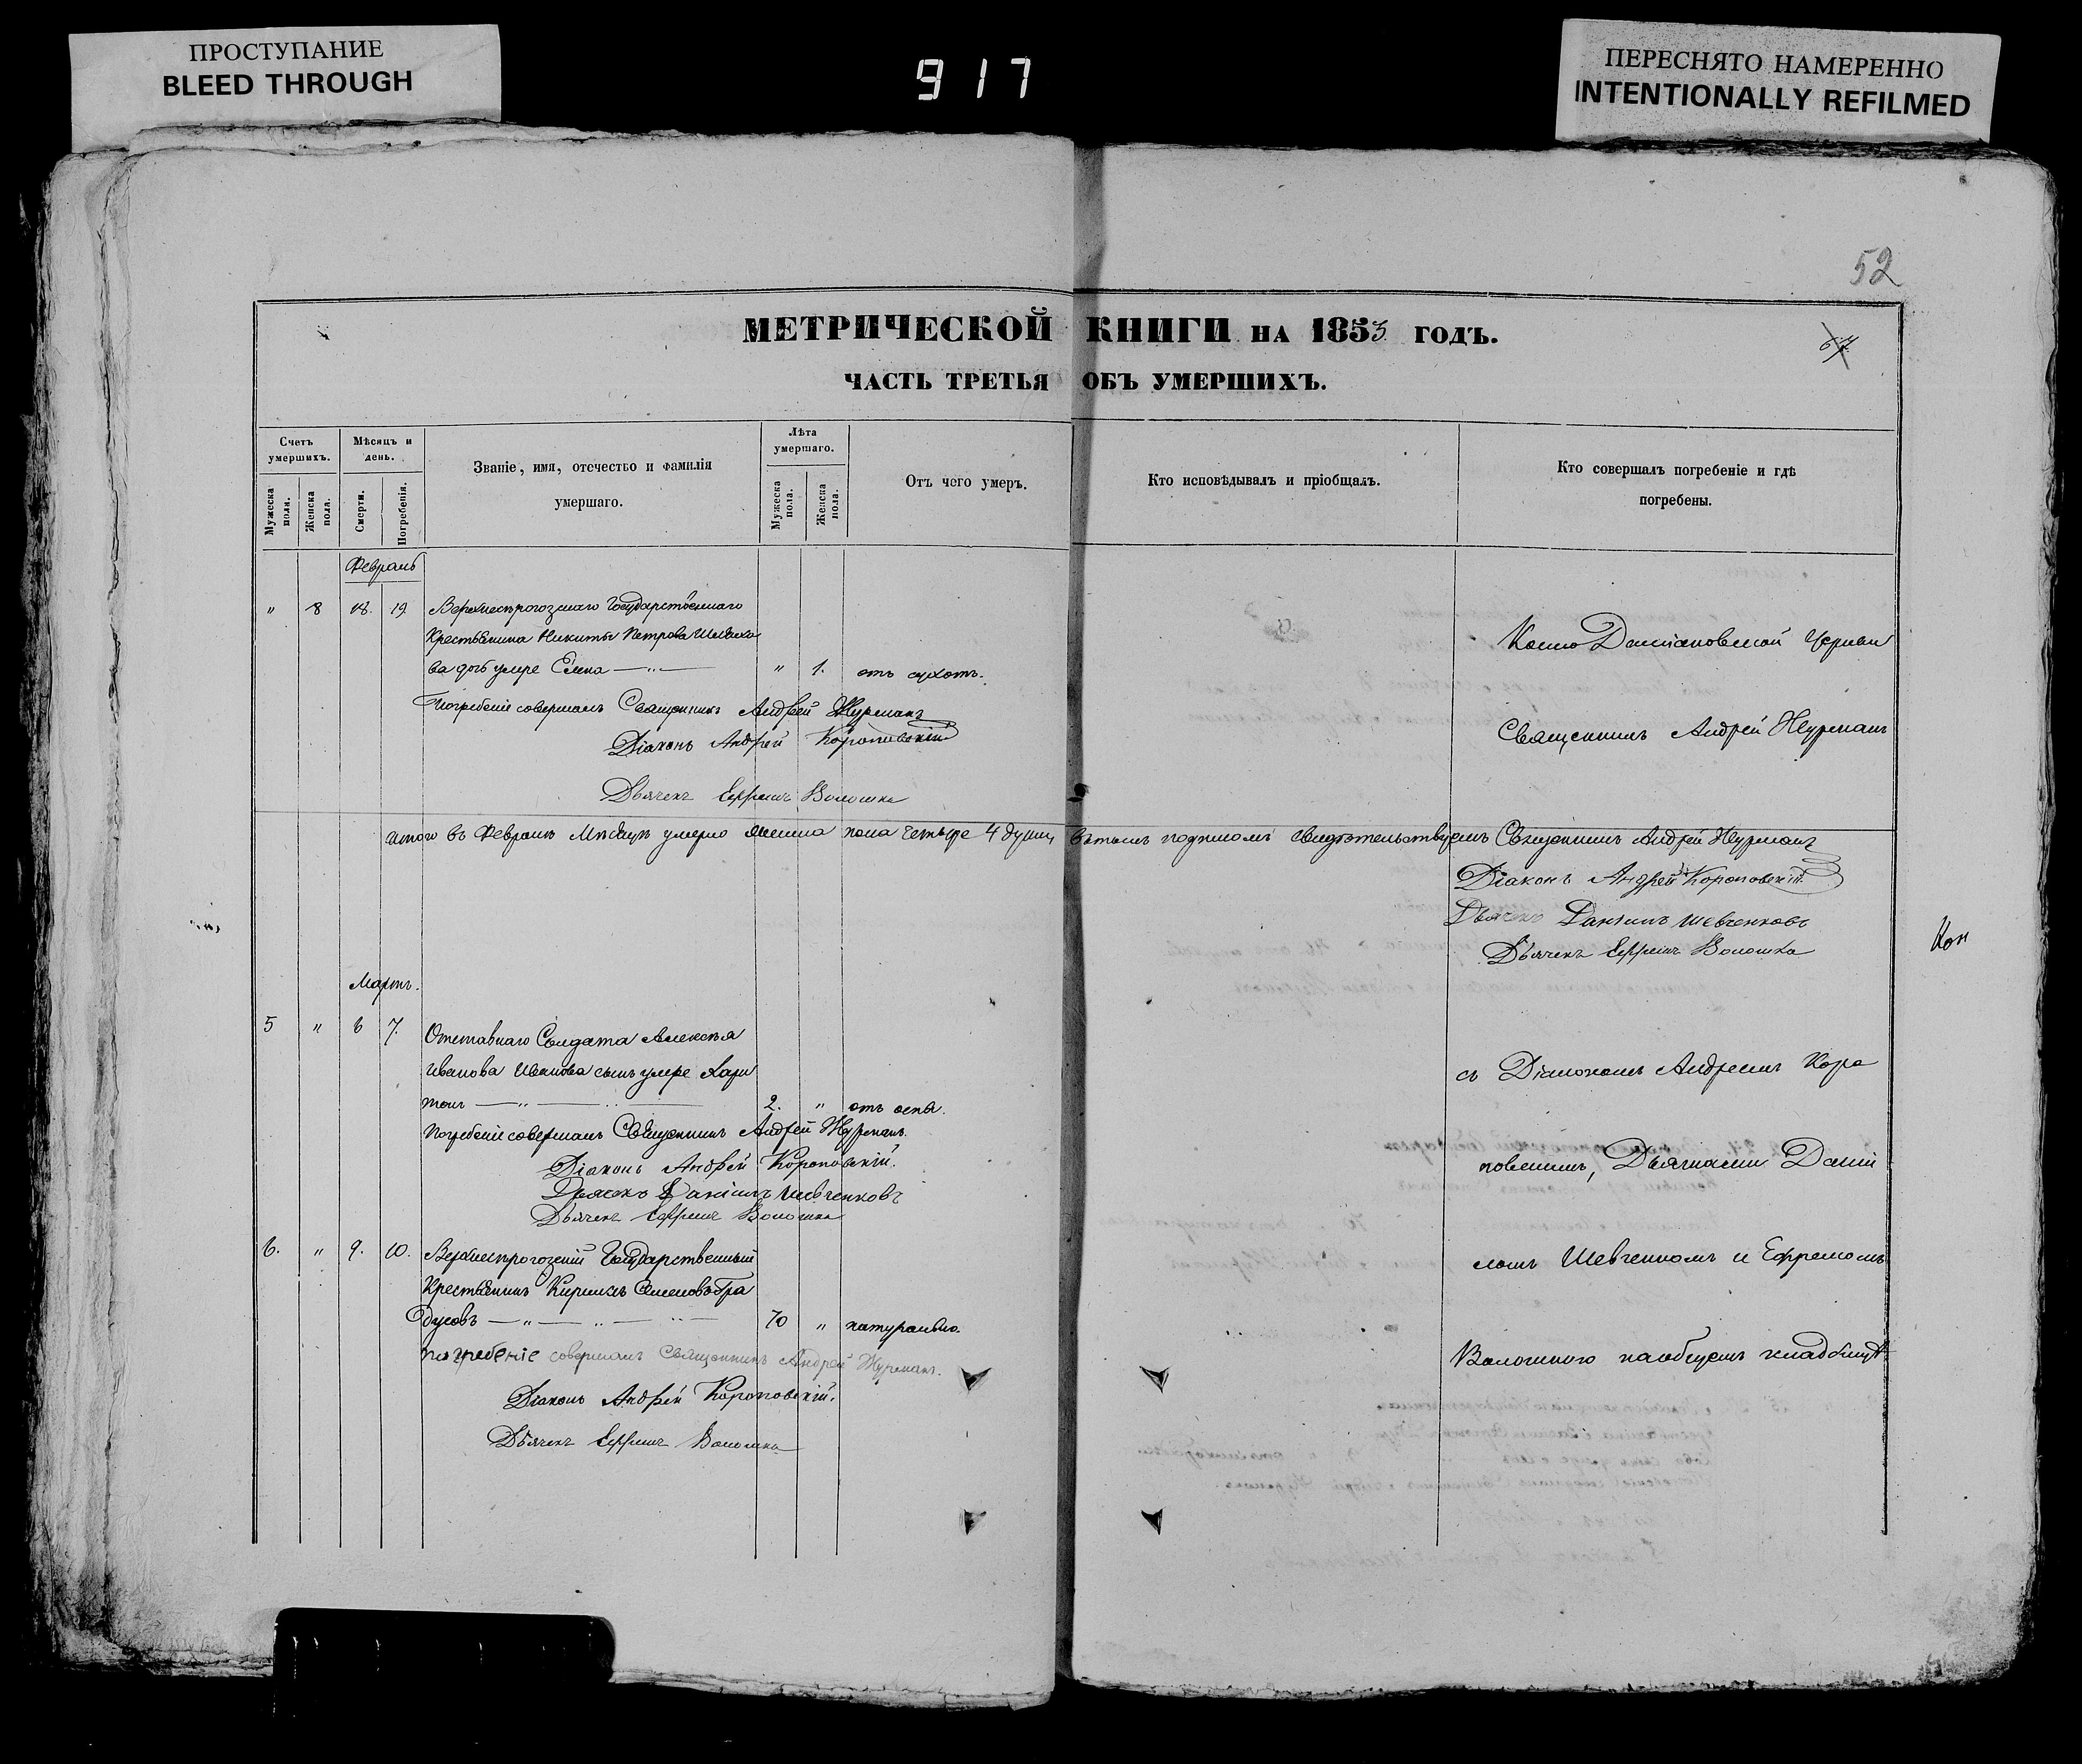 ПРОСТУПАНИЕ
BLEED THROUGH
917
ПЕРЕСНЯТО НАМЕРЕННО
INTENTIONALLY REFILMED
52
МЕТРИЧЕСКОЙ КНИГИ НА 1853 ГОДЪ.
67
ЧАСТЬ ТРЕТЬЯ ОБЪ УМЕРШИХЪ.
Счетъ умершихъ.
Мужеска пола.
Женска пола.
Мѣсяцъ и день.
Смерти.
Погребенія.
Званіе, имя, отечество и фамилія
умершаго.
Лѣта умершаго.
Мужеска пола.
Женска пола.
Отъ чего умеръ.
Кто исповѣдывалъ и пріобщалъ.
Кто совершалъ погребеніе и гдѣ
погребены.
Февраль
" 8 18. 19 Верхнерогозкаго Государственнаго
Крестьянина Никиты Петрова
ва дочь умре Елена " 1. отъ сухотъ.
Погребеніе совершалъ Священникъ Андрей Журманъ
Діаконъ Андрей Короповскій
Дьячекъ Ефремъ Волошка
Космо Даміановской Церкви
Священникъ Андрей Журманъ
Итого въ Февралѣ Мѣсяцѣ умерло женска пола четыре 4 души, въ томъ подписомъ свидѣтельствуемъ Священникъ Андрей Журманъ
Діаконъ Андрей Короповскій
Дьячекъ Даніилъ Шевченковъ
Дьячекъ Ефремъ Волошка
Кон
Мартъ.
5 " 6 7. Отставнаго Солдата Алексѣя
Иванова Иванова сынъ умре Хари
тонъ 2. " отъ оспы.
Погребеніе совершалъ Священникъ Андрей Журманъ.
Діаконъ Андрей Короповскій.
Дьячекъ Даніилъ Шевченковъ
Дьячекъ Ефремъ Волошка
6. " 9. 10. Верхнерогозкій Государственный
Крестьянинъ Кириллъ Семеновъ Гра
дусовъ 70 " натурально.
погребеніе совершалъ Священникъ Андрей Журманъ.
Діаконъ Андрей Короповскій.
Дьячекъ Ефремъ Волошка
съ Діакономъ Андреемъ Коро
повскимъ, Дьячками Даніи
ломъ Шевченкомъ и Ефремомъ
Волошкою на общемъ кладбищѣ